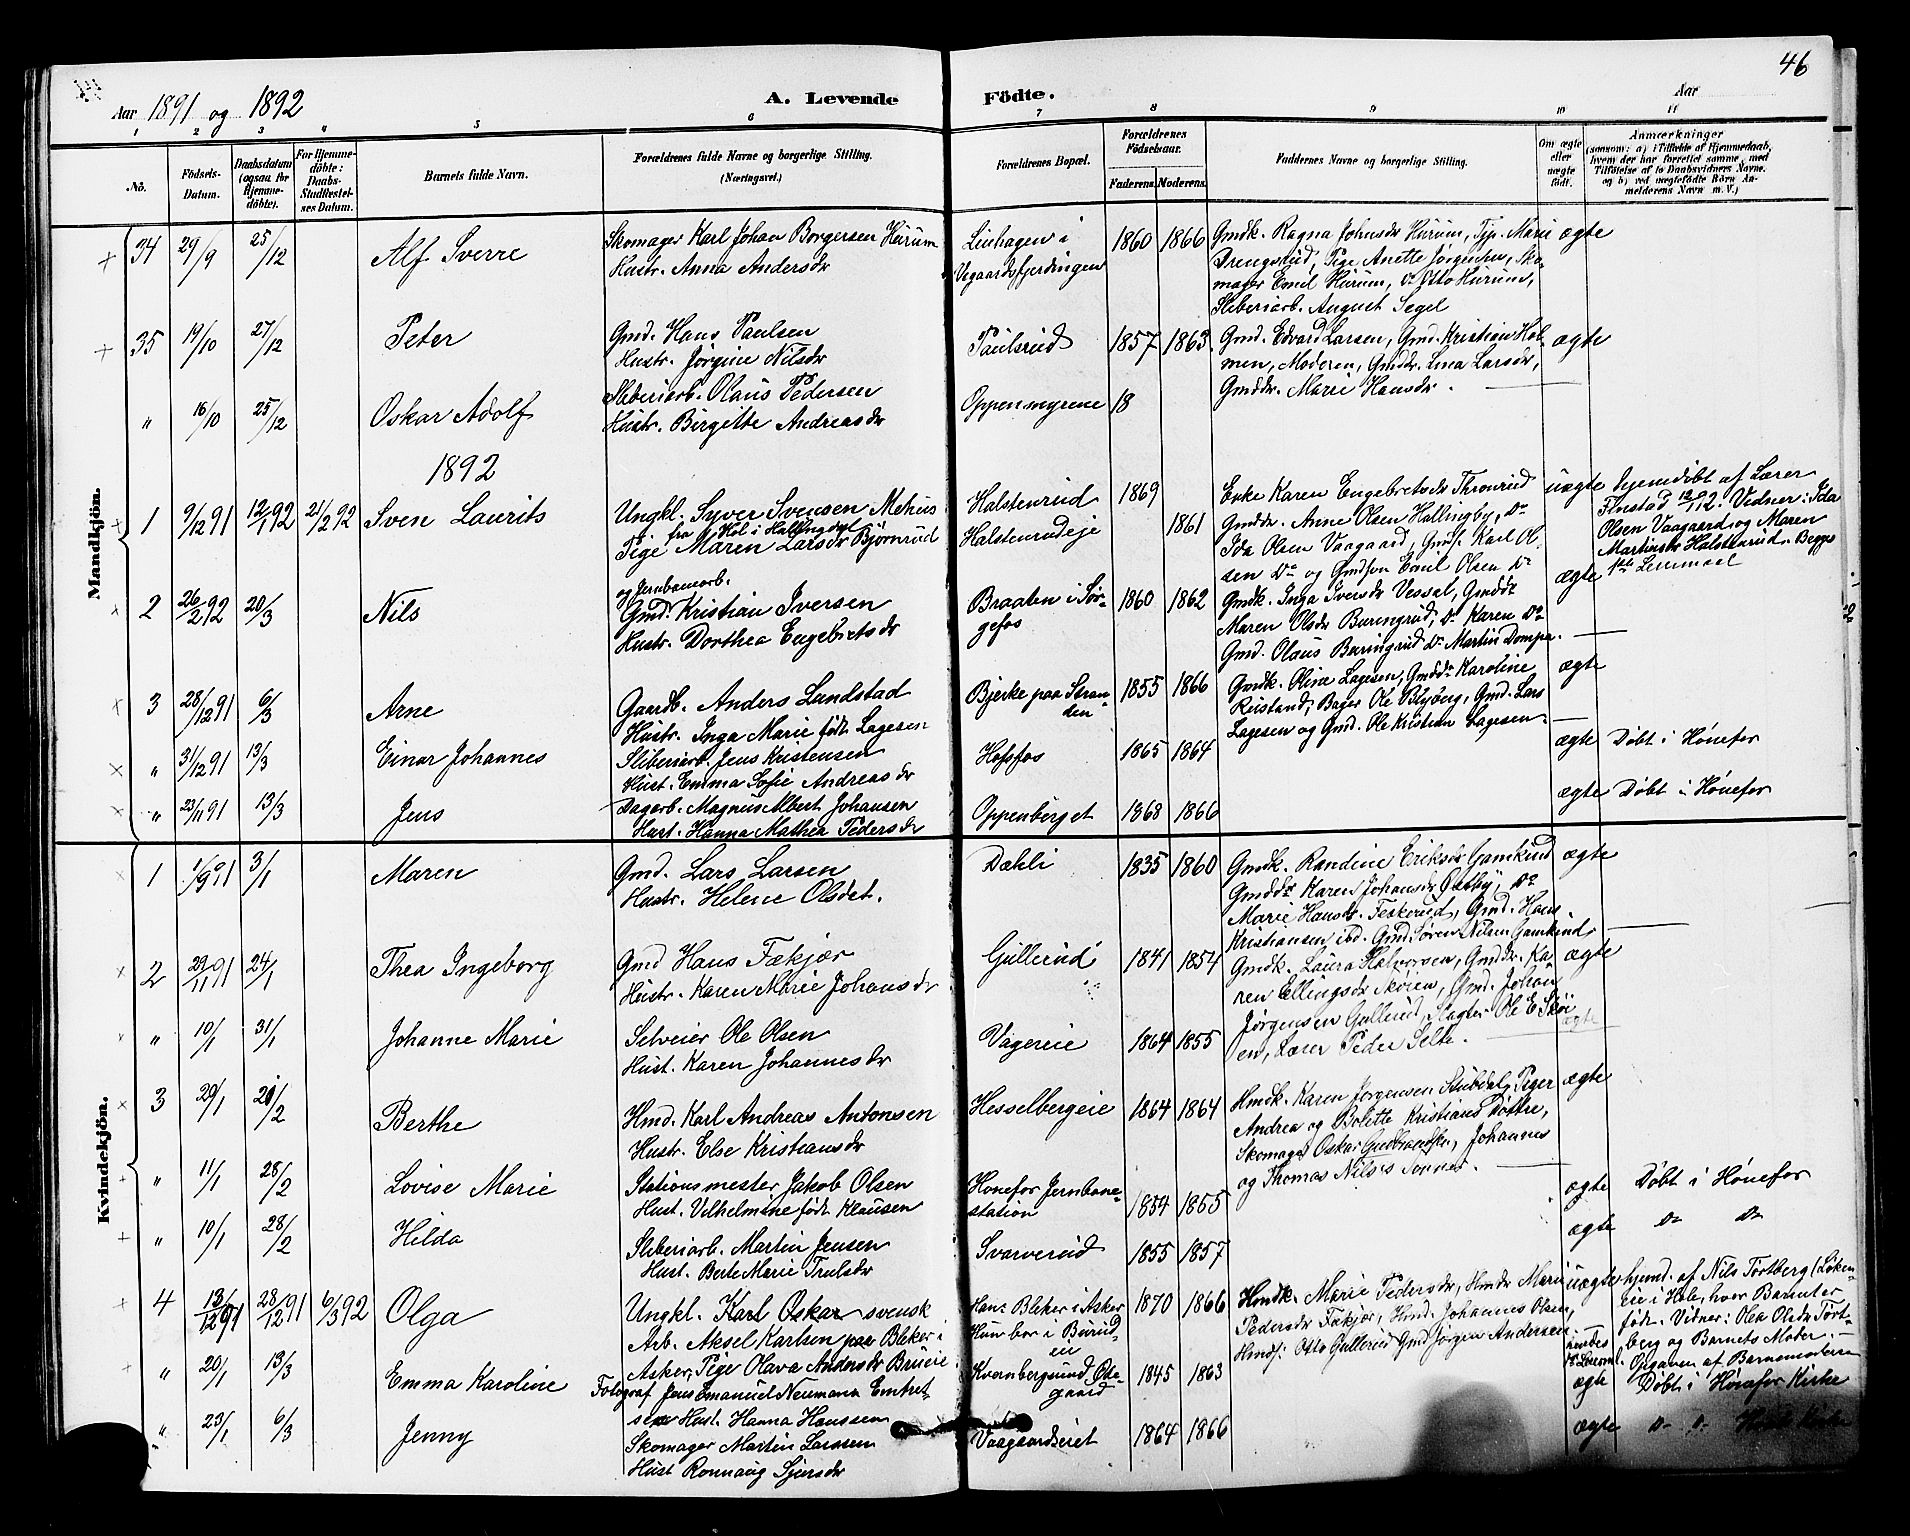 46
Aar 1891 og 1892
A. Levende Födte.
Aar
1 2 3 4 5 6 7 8 9 10 11
No.
Födsels-Datum.
Daabsdatum (ogsaa for Hjemme-döbte).
For Hjemme-döbte: Daabs-Stadfæstel-ses Datum.
Barnets fulde Navn.
Forældrenes fulde Navne og borgerlige Stilling.
(Næringsvei.)
Forældrenes Bopæl.
Forældrenes Födselsaar.
Faderens. Moderens.
Faddernes Navne og borgerlige Stilling.
Om ægte eller uægte födt.
Anmærkninger
(saasom: a) i Tilfælde af Hjemmedaab, hvem der har forrettet samme, med Tilföielse af to Daabsvidners Navne, og b) ved uægtefödte Börn An-melderens Navn m. V.)
Mandkjön.
34 29/9 25/12 Alf Sverre
Skomager Karl Johan Borgersen Hurum
Hustr. Anna Andersdr
Linhagen i
Vegaardsfjerdingen
1860 1866
Gmdk. Ragna Johnsdr Hurum, Pig. Marie
Drengstud, Pige Anette Jørgensen, Sko-
mager Emil Hurum, Do Otto Hurum,
Sliberiarb. August Segel
ægte
35 19/10 27/12 Peter
Gmd. Hans Paulsen
Hustr. Jørgine Nilsdr
Paulsrud 1857 1863
Gmd. Edvard Larsen, Gmd. Kristian Hol-
men, Moderen, Gmddr. Lina Larsdr,
Gmddr. Marie Hansdr.
ægte
" 16/10 25/12 Oskar Adolf
Sliberiarb. Olaus Pedersen
Hustr. Birgitte Andreasdr
Oppenmyrene 18
1892
1 9/12 91 12/1 92 21/2 92 Sven Laurits
Ungkl. Syver Svensen Mehus
fra Hol i Hallingdal
Pige Maren Larsdr Bjørnrud
Halstenrud 1869
Halstenrudeje 1861
Enke Karen Engebretsdr Thronrud
Gmddr. Anne Olsen Hallingby, Do
Ida Olsen Vaagaard, Gmdf. Karl Ol-
sen Do og Gmdson Emil Olsen Do
uægte hjemdøbt af Lærer
Finstad 12/12. Vidner: Ida
Olsen Vaagaard og Maren
Martinsdr Halstenrud. Begges
1ste Leiermaal
2 26/2 92 20/3 Nils
og Jernbanearb.
Gmd. Kristian Iversen
Hustr. Dorthea Engebretsdr
Braaten i Sør-
gefos
1860 1862
Gmdk. Inga Iversdr Vessal, Gmddr
Maren Olsdr Buringrud, Do Karen Do
Gmd. Olaus Buringrud Do Martin Dompa.
ægte
3 28/12 91 6/3 Arne
Gaardb. Anders Lundstad
Hustr. Inga Marie født Lagesen
Bjerke paa Stran-
den
1855 1866
Gmdk. Oline Lagesen, Gmddr Karoline
Reistand, Bager Ole Blyberg, Gmd. Lars
Lagesen og Gmd. Ole Kristian Lagesen.
ægte
" 31/12 91 13/3 Einar Johannes
Sliberiarb. Jens Kristensen
Hust. Emma Sofie Andreasdr
Hofsfos 1865 1864
ægte Døbt i Hønefos
" 23/11 91 13/3 Jens
Dagarb. Magnus Albert Johansen
Hust. Hanna Mathea Pedersdr
Oppenberget 1868 1866
ægte Døbt i Hønefos
Kvindekjön.
1 1/9 91 3/1 Maren
Gmd. Lars Larsen
Hustr. Helene Olsdet.
Dæhli 1835 1860
Gmdk. Randine Eriksdr Gamkind
Gmddr Karen Johansdr Østby, Do
Marie Hansdr. Feskerud, Gmd. Hans
Kristiansen ibd. Gmd. Søren Nilsen Gamkind
ægte
2 29/11 91 24/1 Thea Ingeborg
Gmd Hans Fækjær
Hustr. Karen Marie Johansdr
Gullerud 1841 1854
Gmdk. Laura Halvorsen, Gmddr. Ka-
ren Ellingsdr Skøien, Gmd. Johan
Jørgensen Gullerud, Slagter Ole E Skøi-
en, Lærer Peder Selte.
ægte
" 10/1 31/1 Johanne Marie
Selveier Ole Olsen
Hust. Karen Johannesdr
Vagereie 1864 1855
ægte
3 20/1 21/2 Berthe
Hmd. Karl Andreas Antonsen
Hustr. Else Kristiansdr
Hesselbergeie 1864 1864
Hmdk. Karen Jørgensen Stubdal, Piger
Andrea og Bolette Kristians Døttre,
Skomager Oskar Gudbrandsen, Johannes
og Thomas Nils's Sønner.
ægte
" 11/1 28/2 Lovise Marie
Stationsmester Jakob Olsen
Hust. Vilhelmine født Klausen
Hønefos Jernbane-
station
1854 1855
ægte Døbt i Hønefos
" 10/1 28/2 Hilda
Sliberiarb. Martin Jensen
Hust. Berte Marie Trulsdr
Svarverud 1855 1857
ægte Do Do
4 13/12 91 28/12 91 6/3 92 Olga
Ungkl. Karl Oskar svensk
Arb. Aksel Karlsen paa Bleker i
Asker, Pige Olava Andersdr Brueie
Han: Bleker i Asker
Hun bor i Burud-
en
1870 1866
Hmdk. Marie Pedersdr, Hmddr Maria
Pedersdr Fækjær, Hmd. Johannes Olsen,
Hmdf. Otto Gullerud Gmd Jørgen Andersen.
uægte
hendes
Leierml.
hjemd. af Nils Tortberg (Løken-
eie i Hole, hvor Barnet er
født. Vidner: Olea Olsdr Tort-
berg og Barnets Moder.
Opgaven af Barnemoderen
" 20/1 13/3 Emma Karoline
Fotograf Jens Emanuel Neumann Embret-
sen Hust. Hanna Hanssen
Kvernbergsund Øde-
gaard
1845 1863
ægte Døbt i Hønefos Kirke
" 23/1 6/3 Jenny
Skomager Martin Larssen
Hust Ronnaug Sjursdr
Vaagaardseiet 1864 1866
ægte Do Do